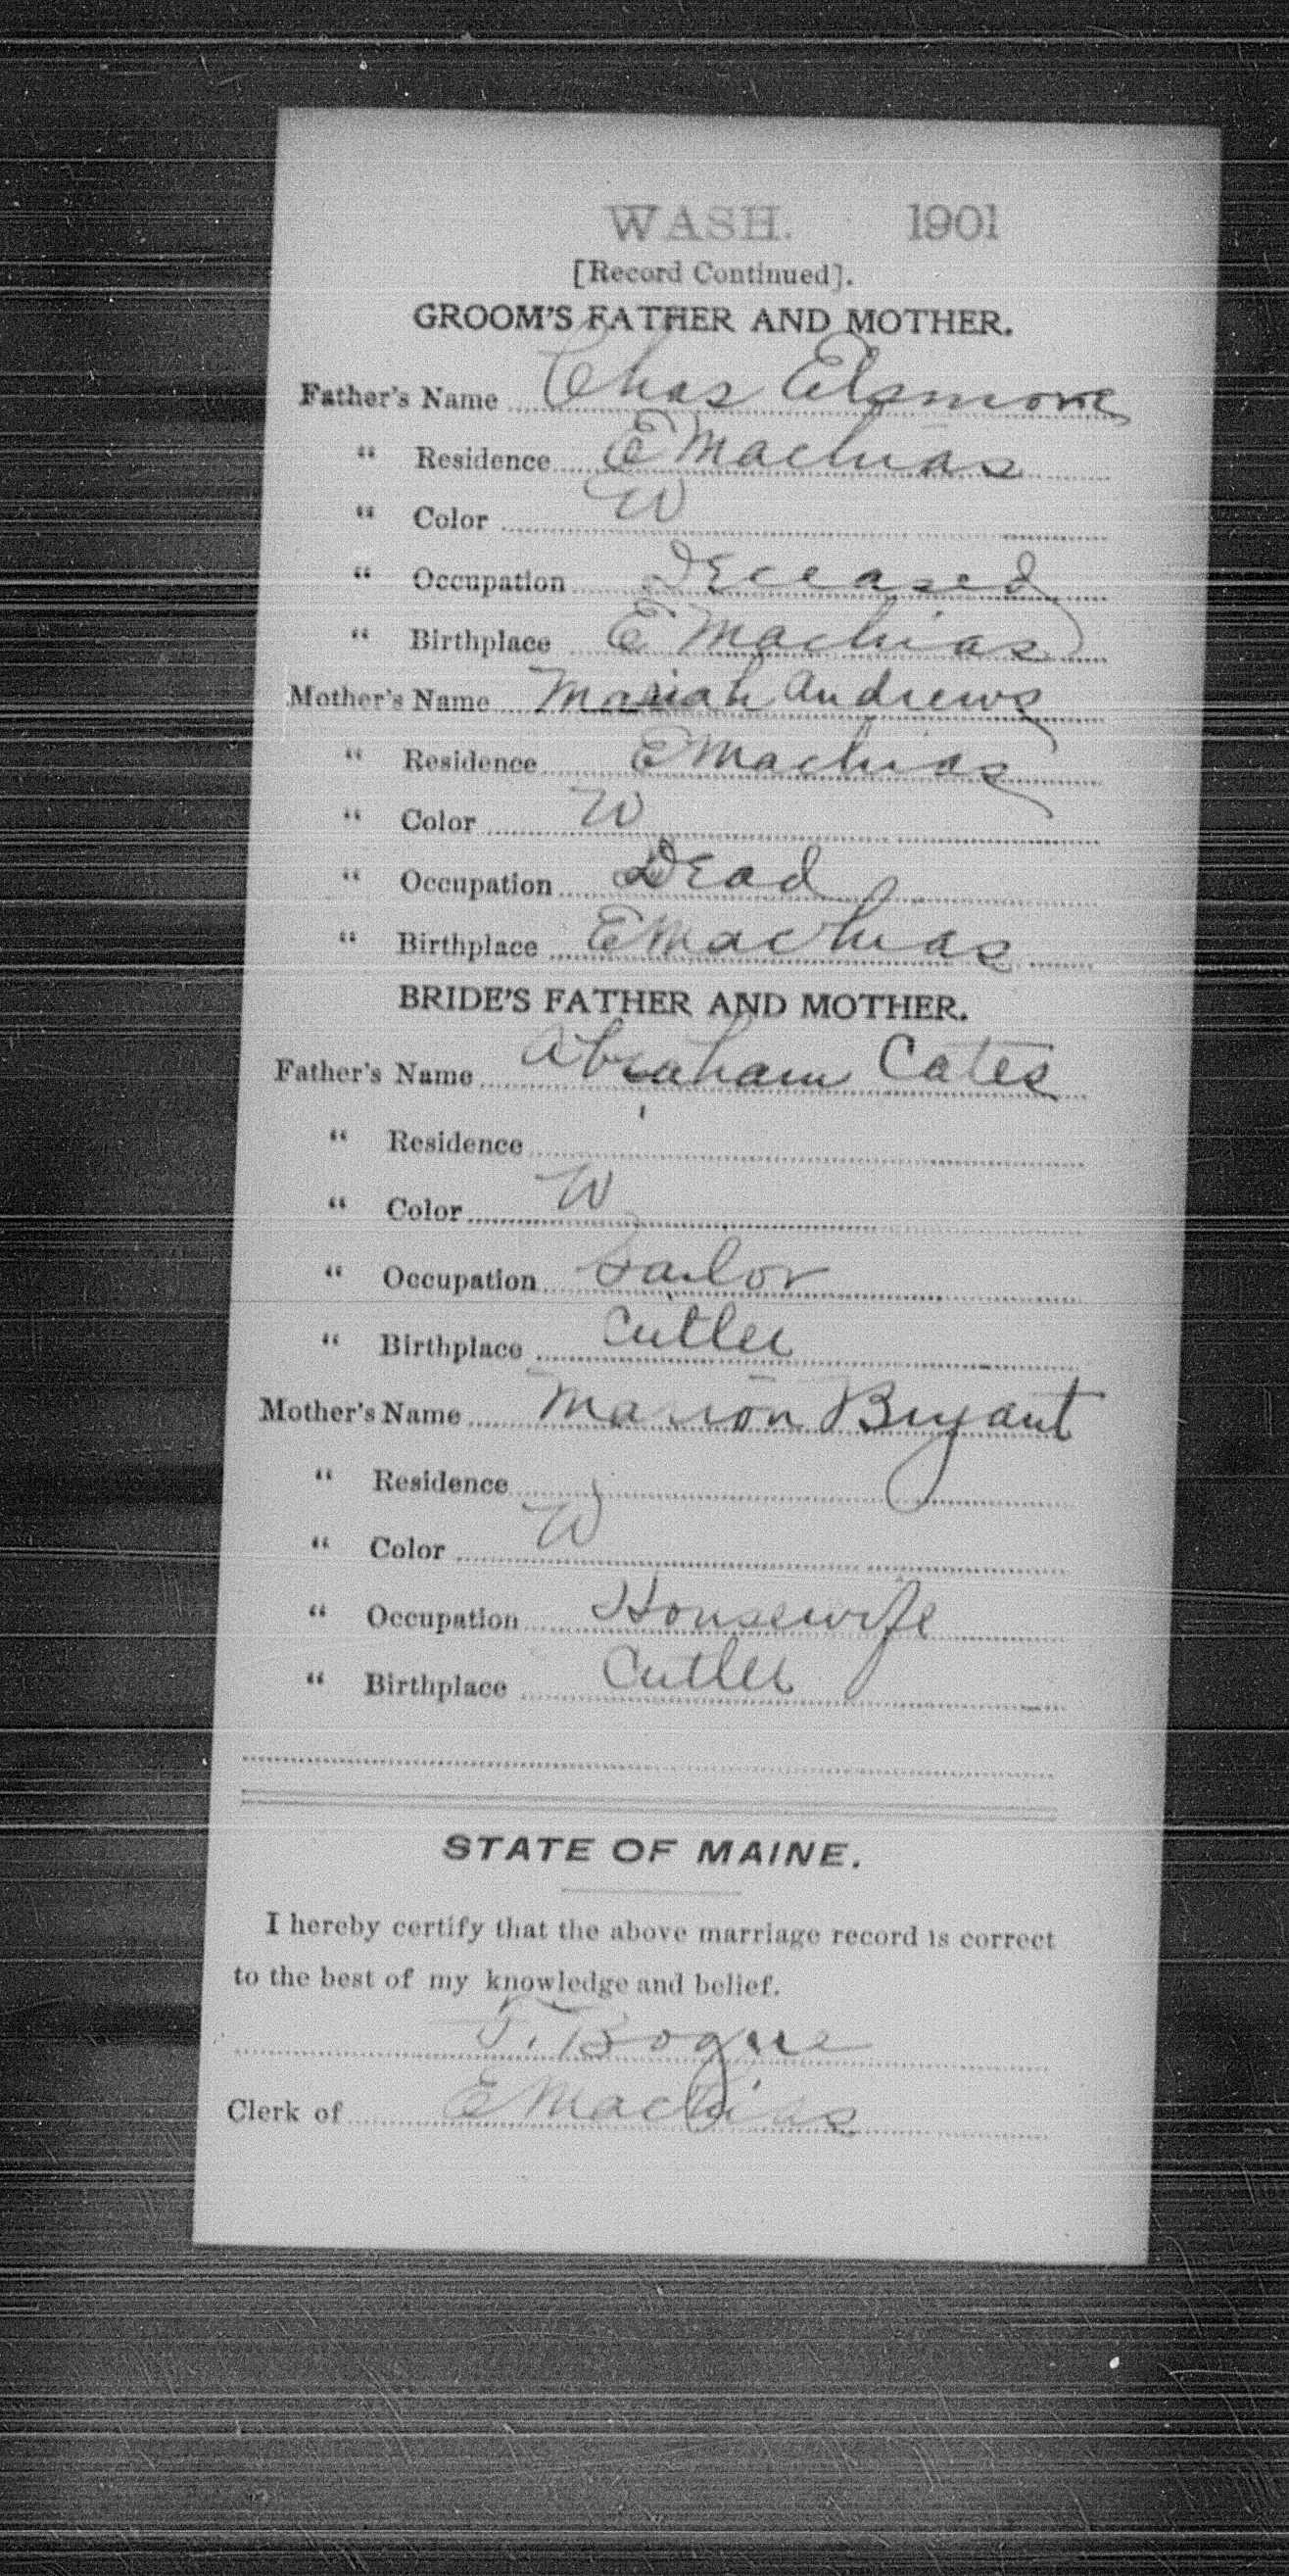 WASH. 1901
[Record Continued].
GROOM'S FATHER AND MOTHER.
Father's Name Chas Elsmore
" Residence E Machias
" Color W
" Occupation Deceased
" Birthplace E Machias
Mother's Name Mariah Andrews
" Residence E Machias
" Color W
" Occupation Dead
" Birthplace E Machias
BRIDE'S FATHER AND MOTHER.
Father's Name Abraham Cates
" Residence
" Color W
" Occupation Sailor
" Birthplace Cutler
Mother's Name Marion Bryant
" Residence
" Color W
" Occupation Housewife
" Birthplace Cutler
STATE OF MAINE.
I hereby certify that the above marriage record is correct
to the best of my knowledge and belief.
J. Bogue
Clerk of E Machias